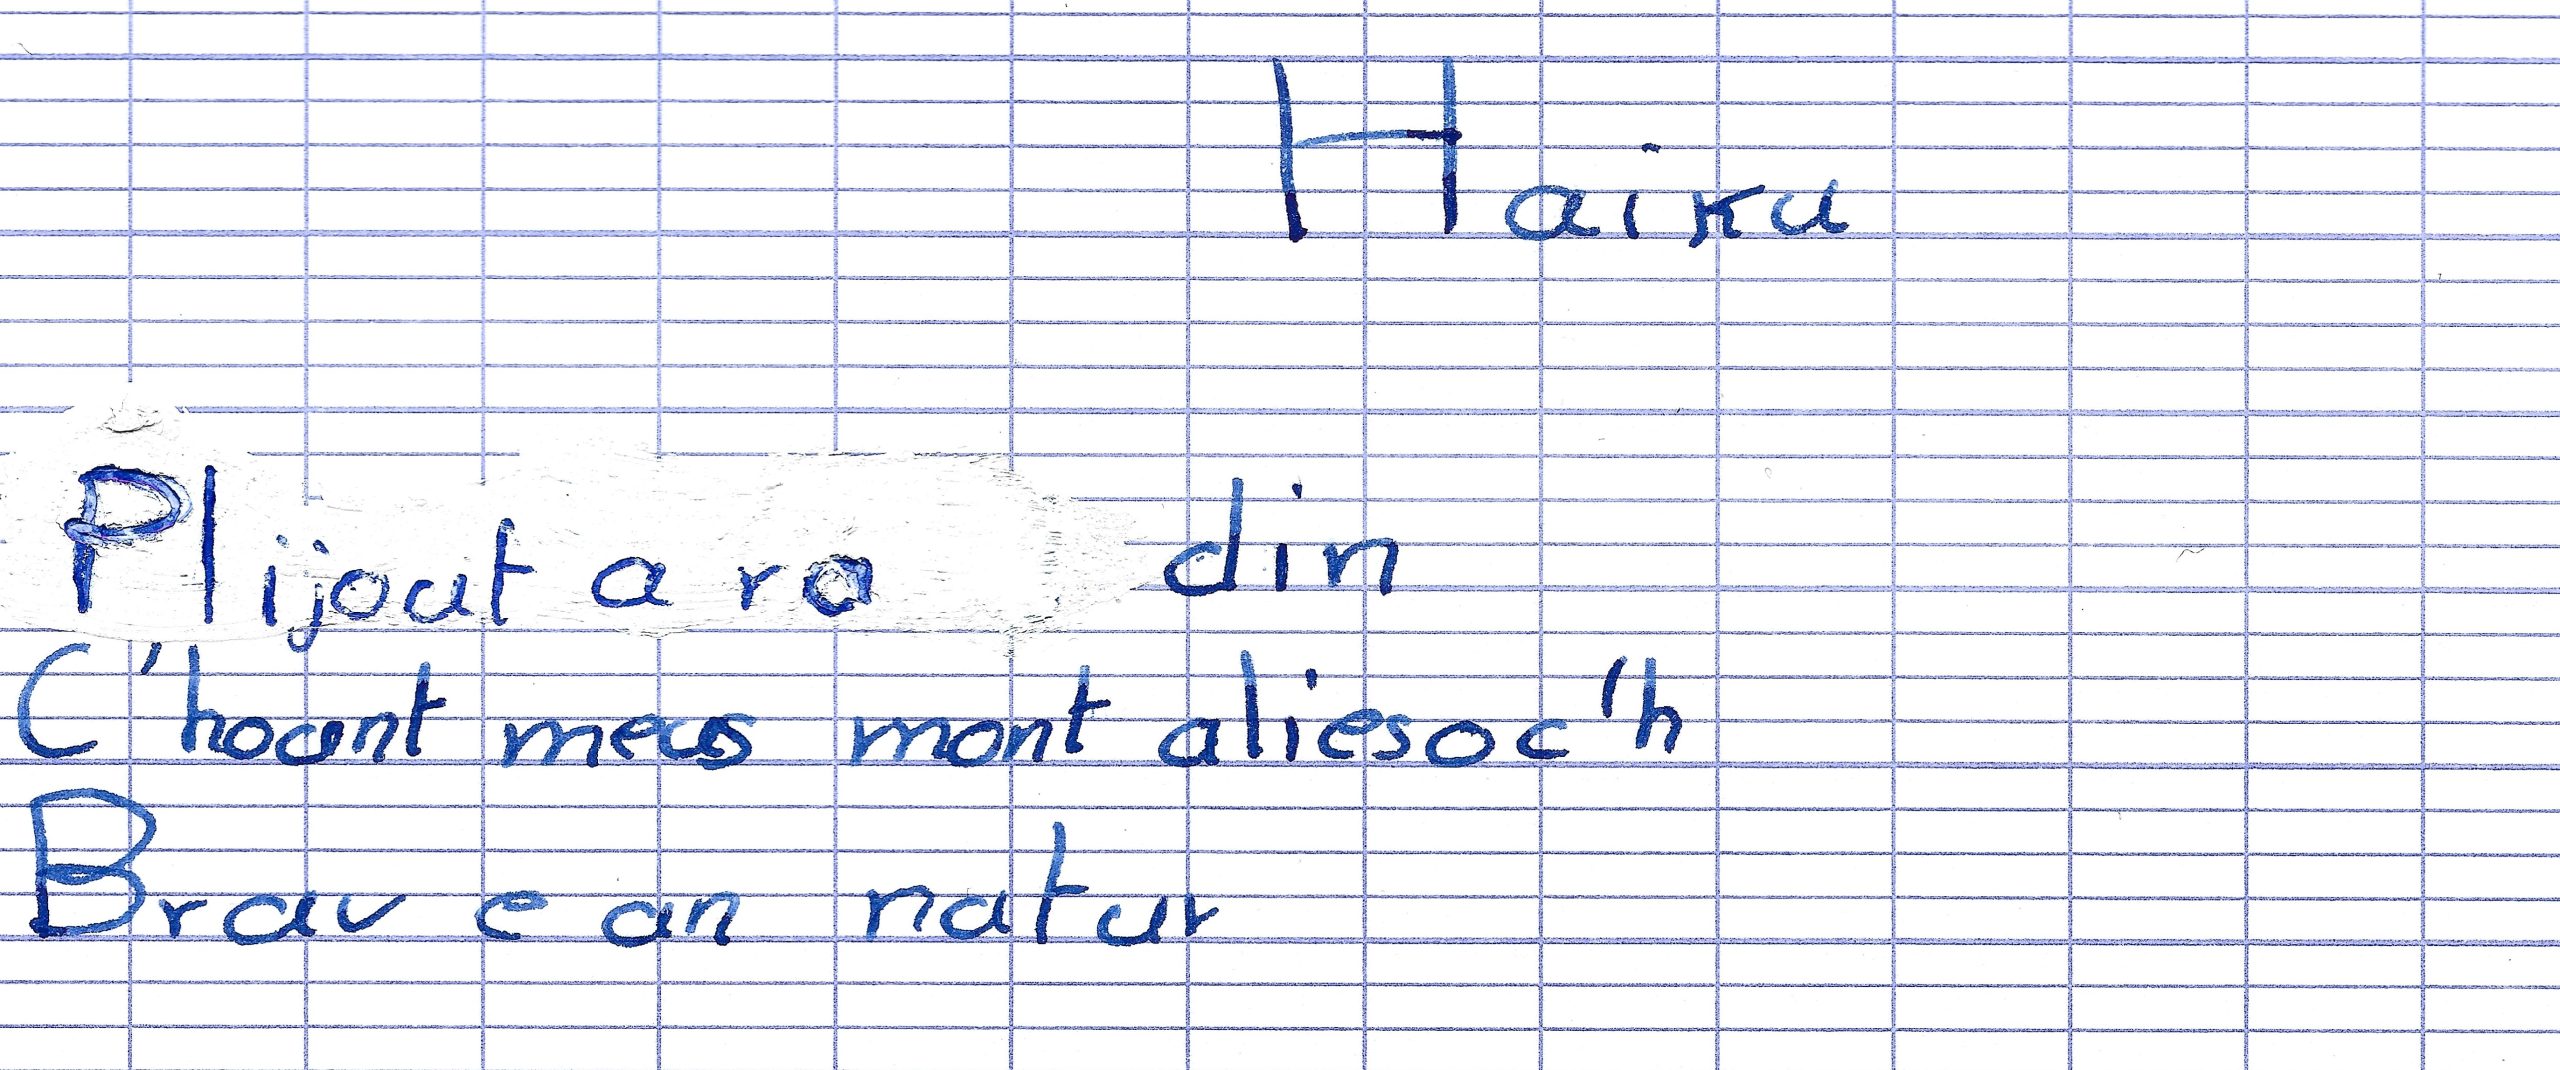 Haiku
Plijout a ra din
C'hoant meus mont aliesoc'h
Brav e an natur